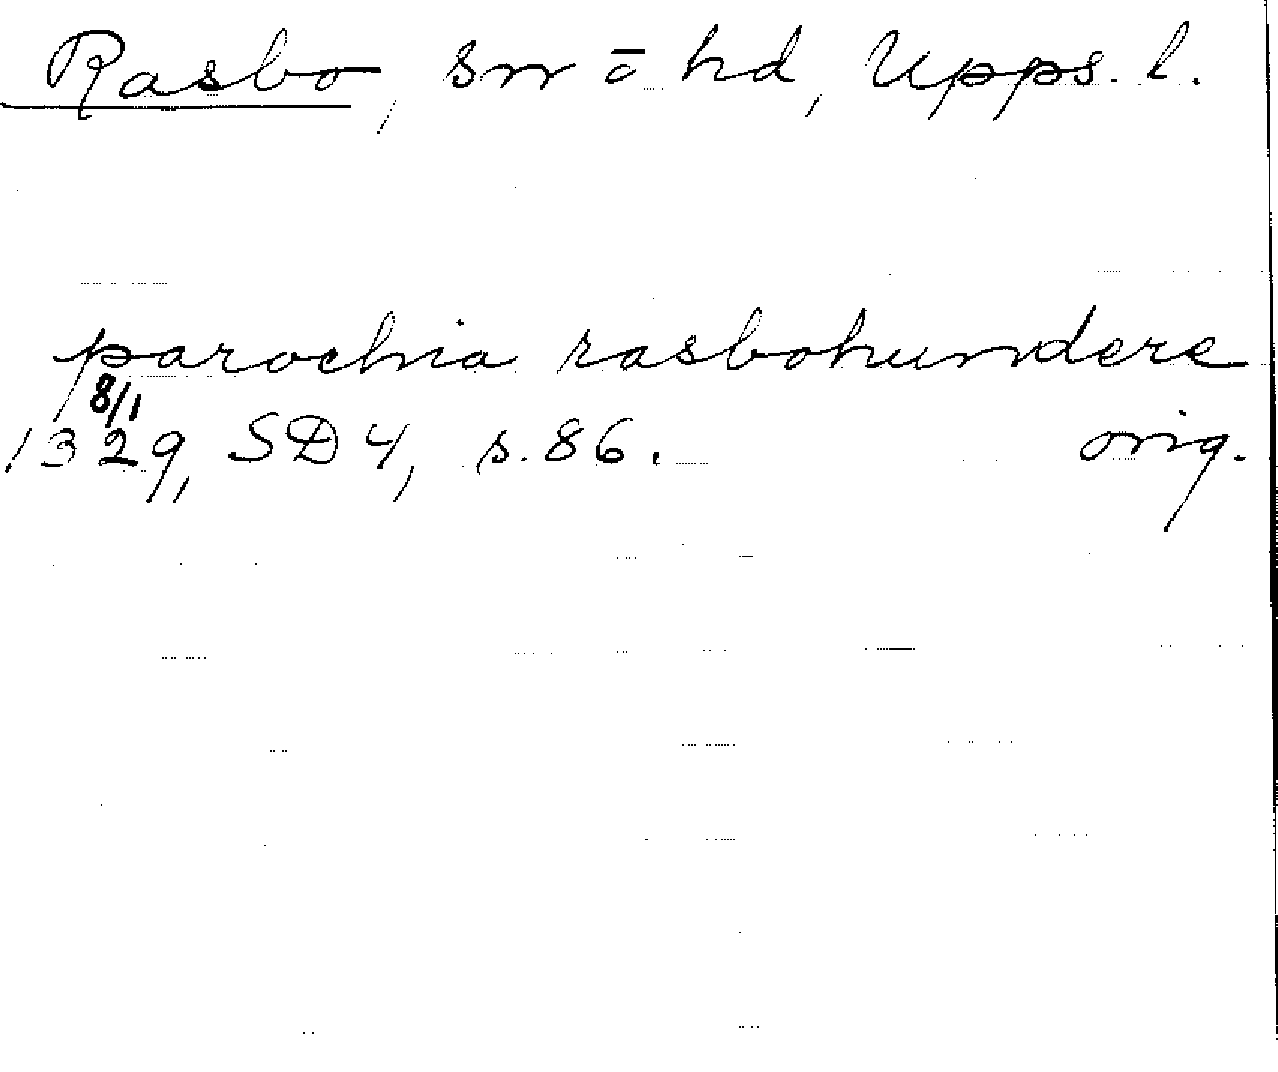 Rasbo, sn ō hd, Upps. l.
parochia rasbohundere
8/1
1329, SD 4, s. 86. orig.